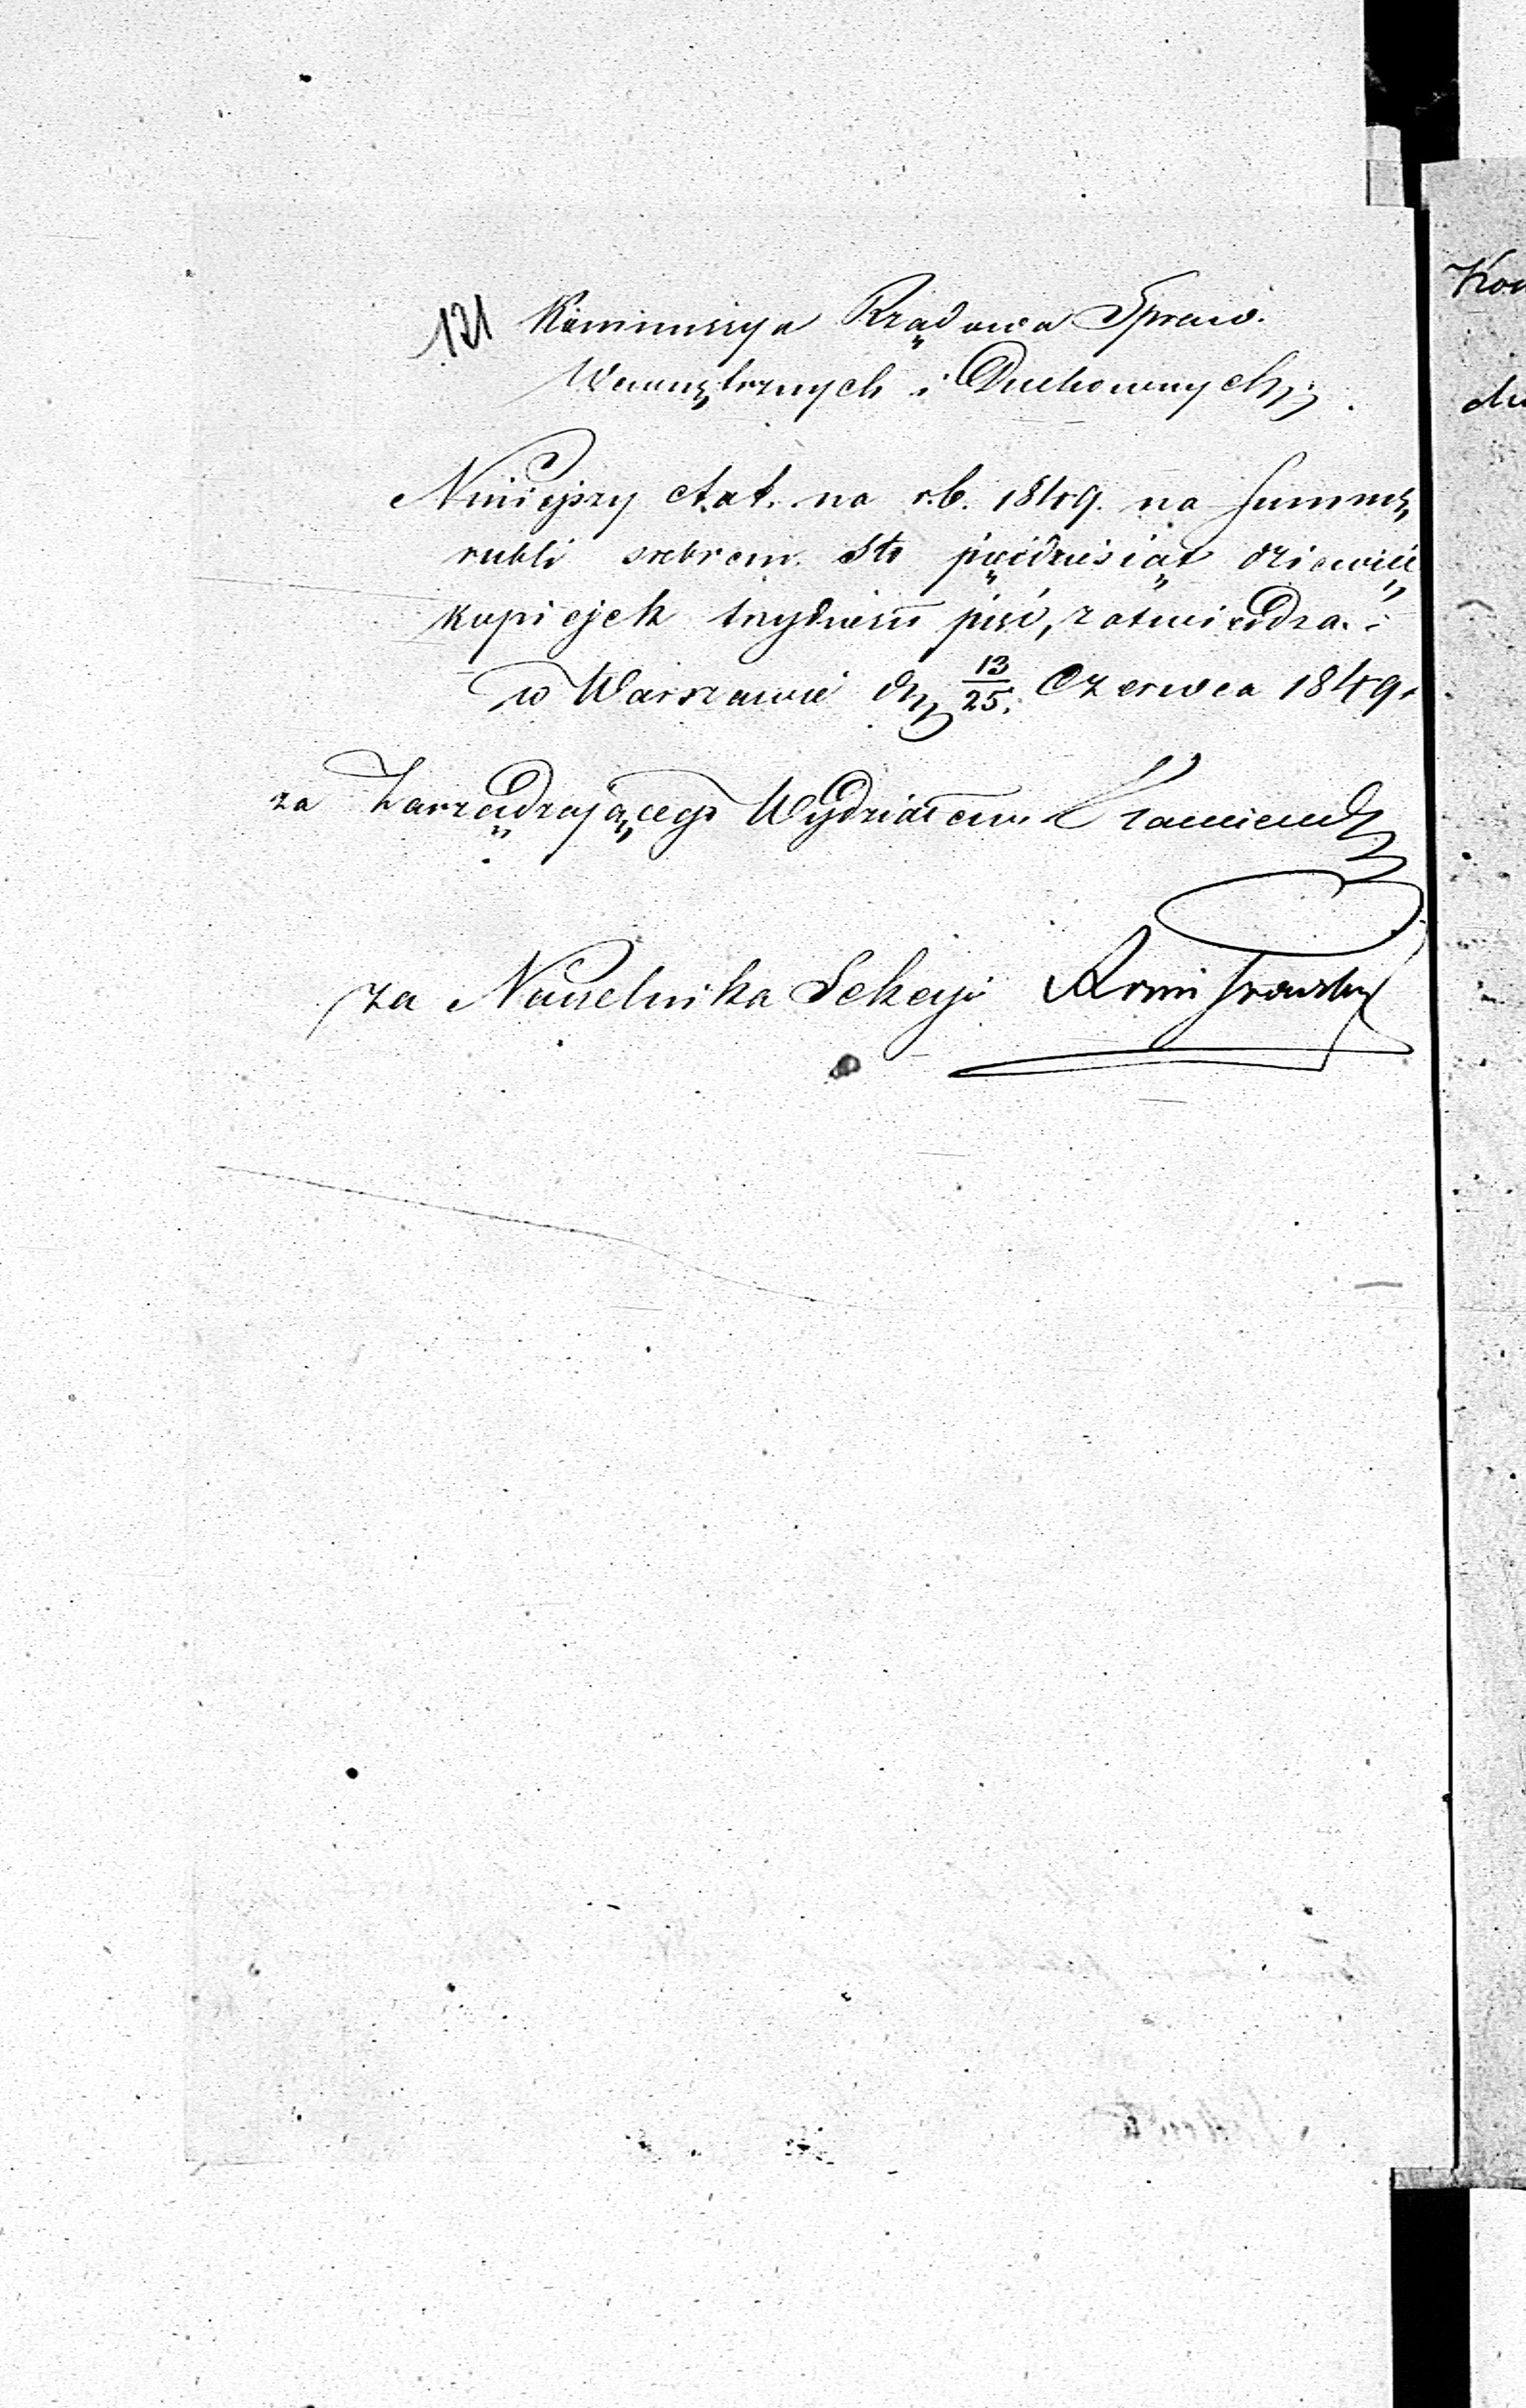 121 Kommissya Rządowa Spraw.
Wewnętrznych i Duchownych
Niniejszy etat. na r.b. 1849. na summę
rubli srebrem. Sto pięćdziesiąt dziewięć
kopiejek trzydzieści pięć, zatwierdza.
w Warszawie d. 13/25. Czerwca 1849.
za Zarządzającego Wydziałem
za Naczelnika Sekcyi